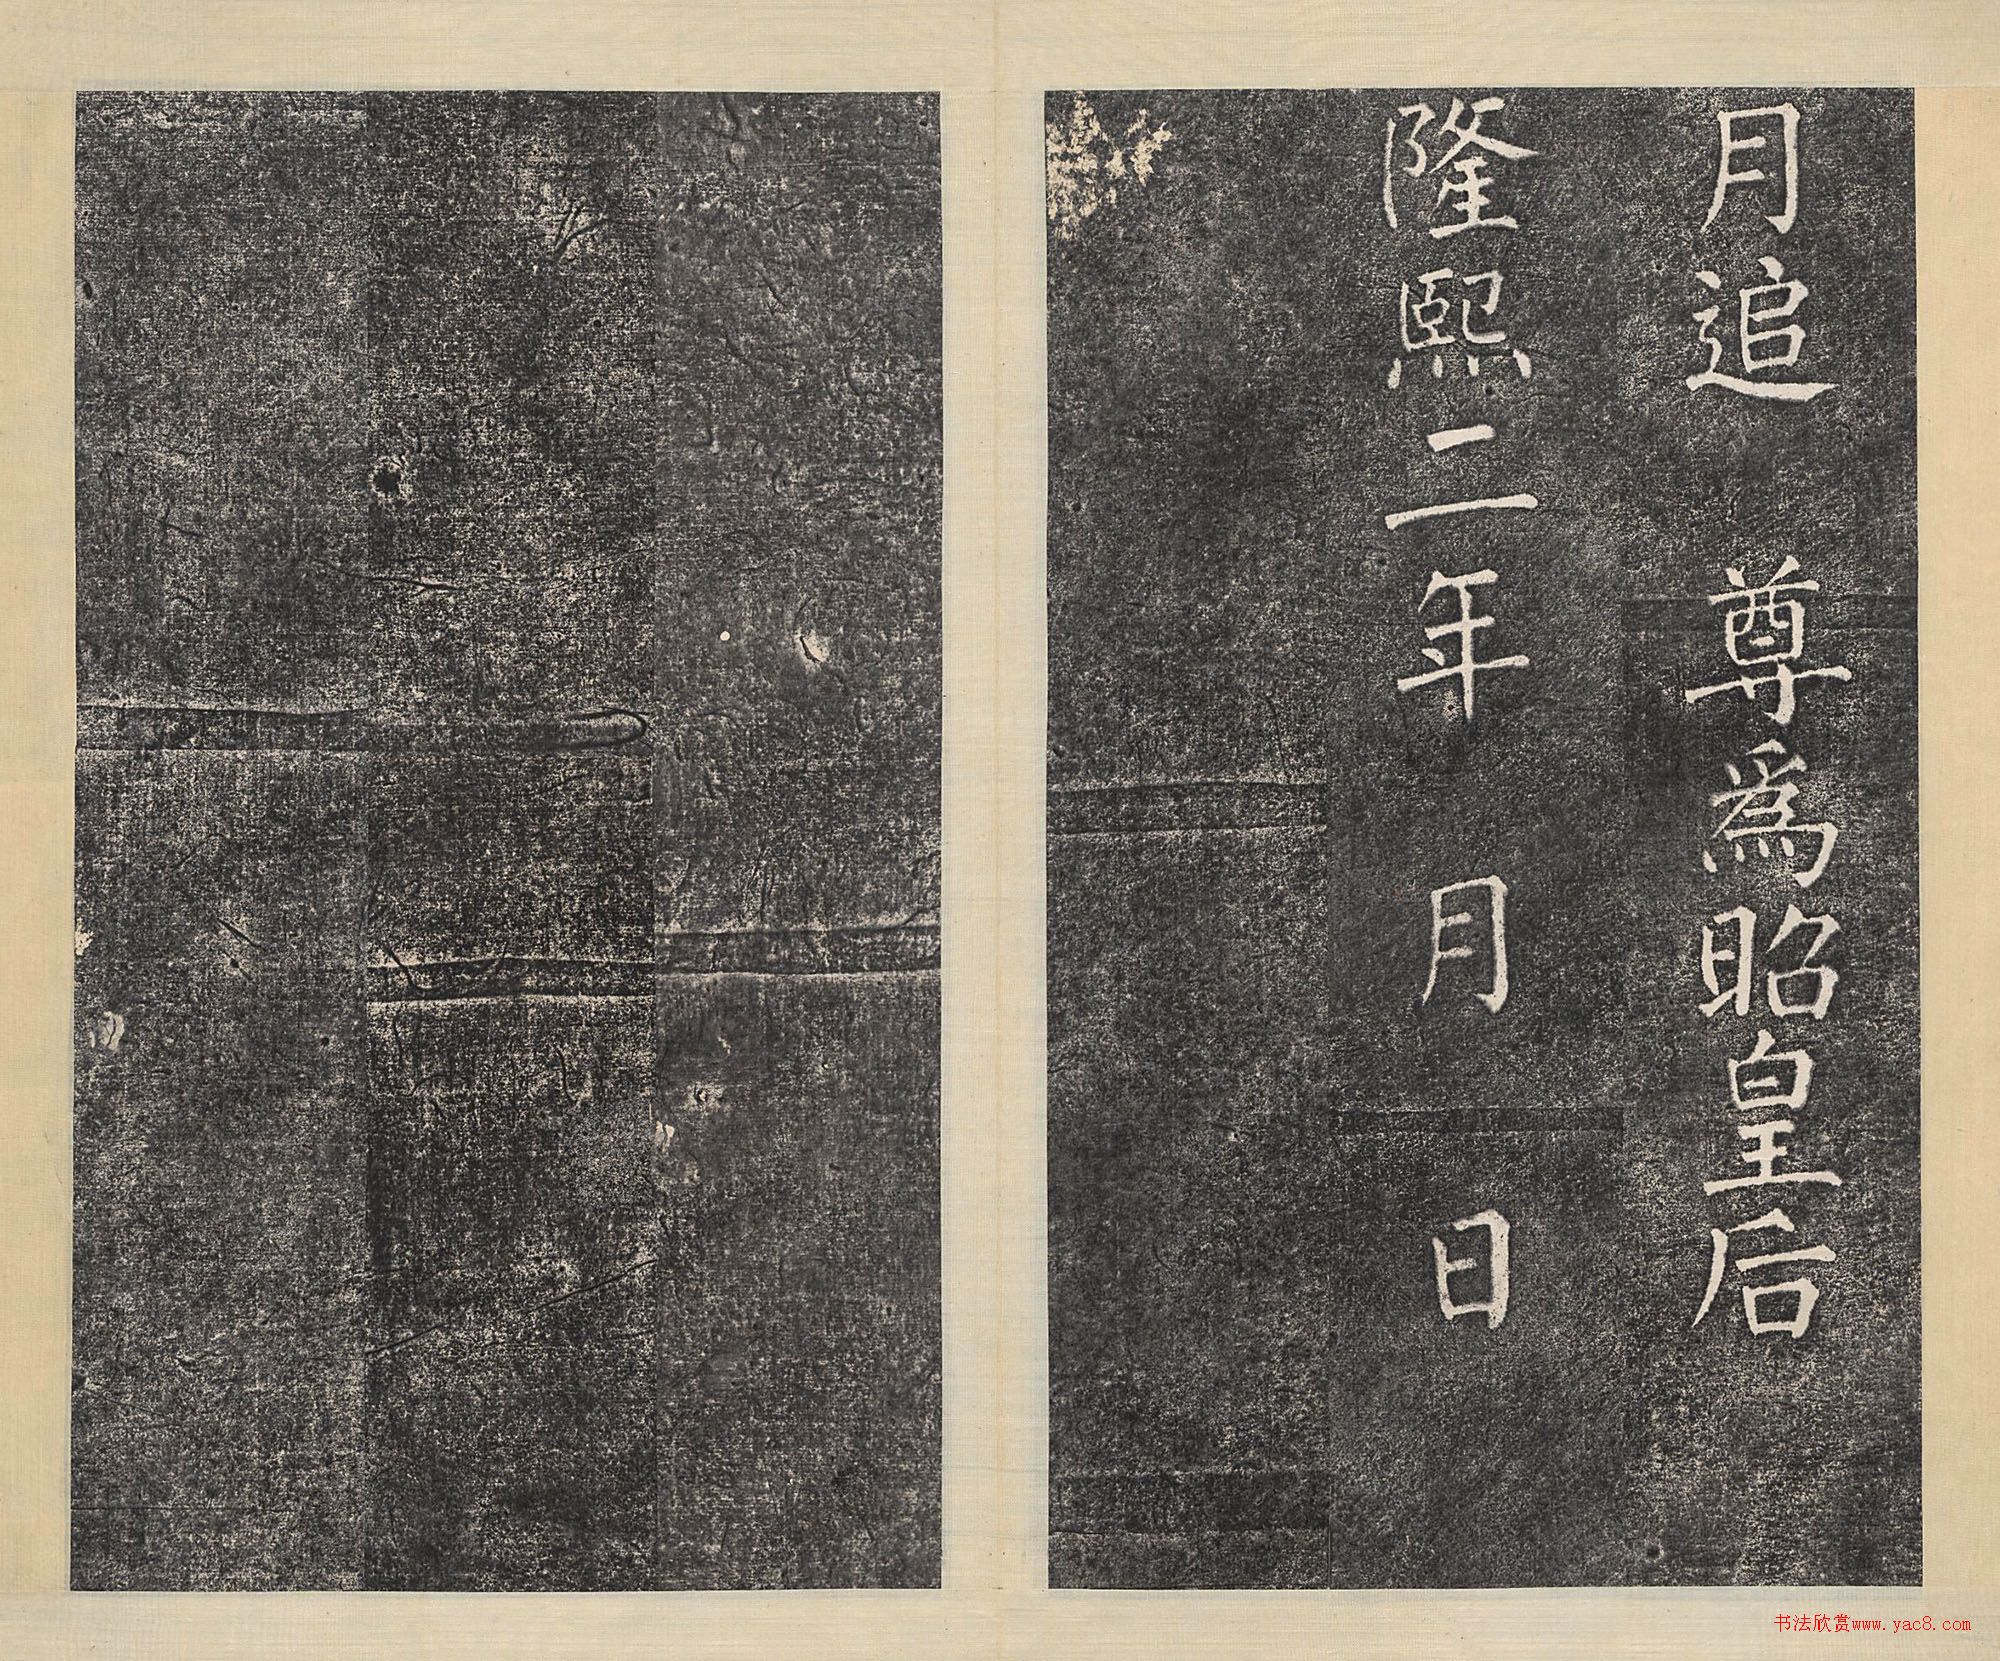 月追 尊爲昭皇后
隆熙二年 月 日
书法欣赏www.yac8.com